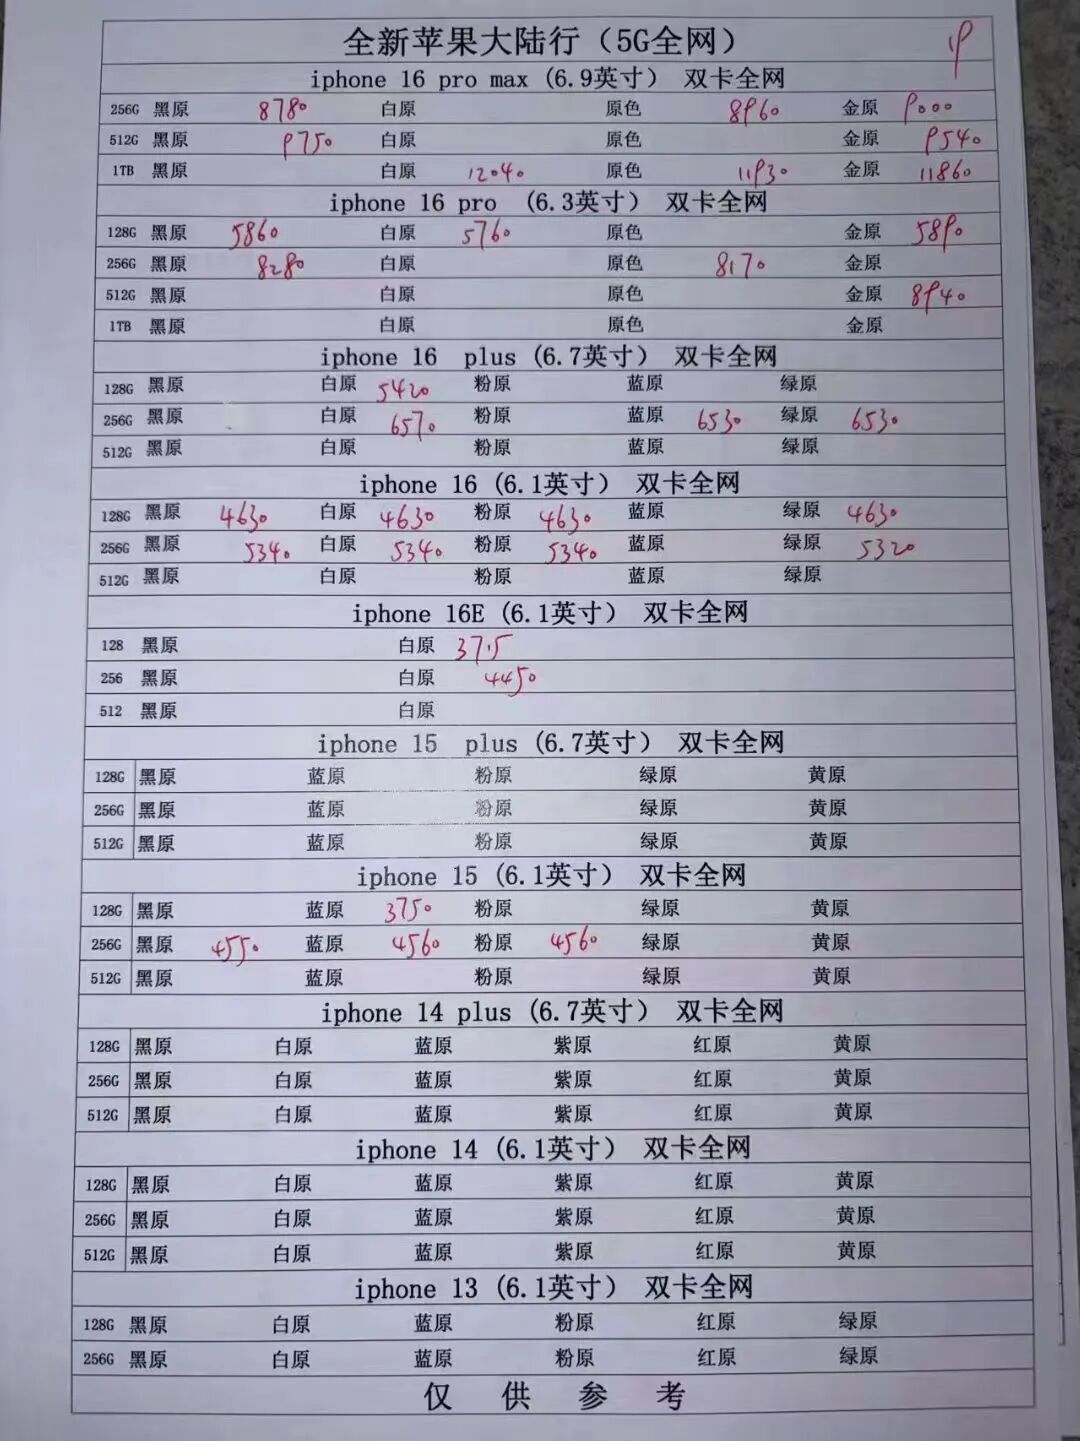 全新苹果大陆行（5G全网） 9
iphone 16 pro max (6.9英寸） 双卡全网
256G 黑原 8780 白原 原色 8960 金原 9000
512G 黑原 9750 白原 原色 金原 9540
1TB 黑原 白原 12040 原色 11930 金原 11860
iphone 16 pro （6.3英寸） 双卡全网
128G 黑原 5860 白原 5760 原色 金原 5890
256G 黑原 8280 白原 原色 8170 金原
512G 黑原 白原 原色 金原 8940
1TB 黑原 白原 原色 金原
iphone 16 plus (6.7英寸） 双卡全网
128G 黑原 白原 5420 粉原 蓝原 绿原
256G 黑原 白原 6570 粉原 蓝原 6530 绿原 6530
512G 黑原 白原 粉原 蓝原 绿原
iphone 16 (6.1英寸） 双卡全网
128G 黑原 4630 白原 4630 粉原 4630 蓝原 绿原 4630
256G 黑原 5340 白原 5340 粉原 5340 蓝原 绿原 5320
512G 黑原 白原 粉原 蓝原 绿原
iphone 16E (6.1英寸） 双卡全网
128 黑原 白原 37.5
256 黑原 白原 4450
512 黑原 白原
iphone 15 plus (6.7英寸） 双卡全网
128G 黑原 蓝原 粉原 绿原 黄原
256G 黑原 蓝原 粉原 绿原 黄原
512G 黑原 蓝原 粉原 绿原 黄原
iphone 15 (6.1英寸） 双卡全网
128G 黑原 蓝原 3750 粉原 绿原 黄原
256G 黑原 4550 蓝原 4560 粉原 4560 绿原 黄原
512G 黑原 蓝原 粉原 绿原 黄原
iphone 14 plus (6.7英寸） 双卡全网
128G 黑原 白原 蓝原 紫原 红原 黄原
256G 黑原 白原 蓝原 紫原 红原 黄原
512G 黑原 白原 蓝原 紫原 红原 黄原
iphone 14 (6.1英寸） 双卡全网
128G 黑原 白原 蓝原 紫原 红原 黄原
256G 黑原 白原 蓝原 紫原 红原 黄原
512G 黑原 白原 蓝原 紫原 红原 黄原
iphone 13 (6.1英寸） 双卡全网
128G 黑原 白原 蓝原 粉原 红原 绿原
256G 黑原 白原 蓝原 粉原 红原 绿原
仅 供 参 考